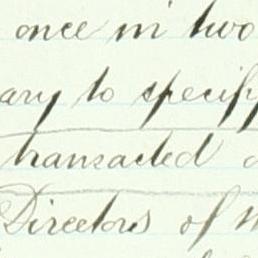 once in two
ary to specify
transacted
Directors of